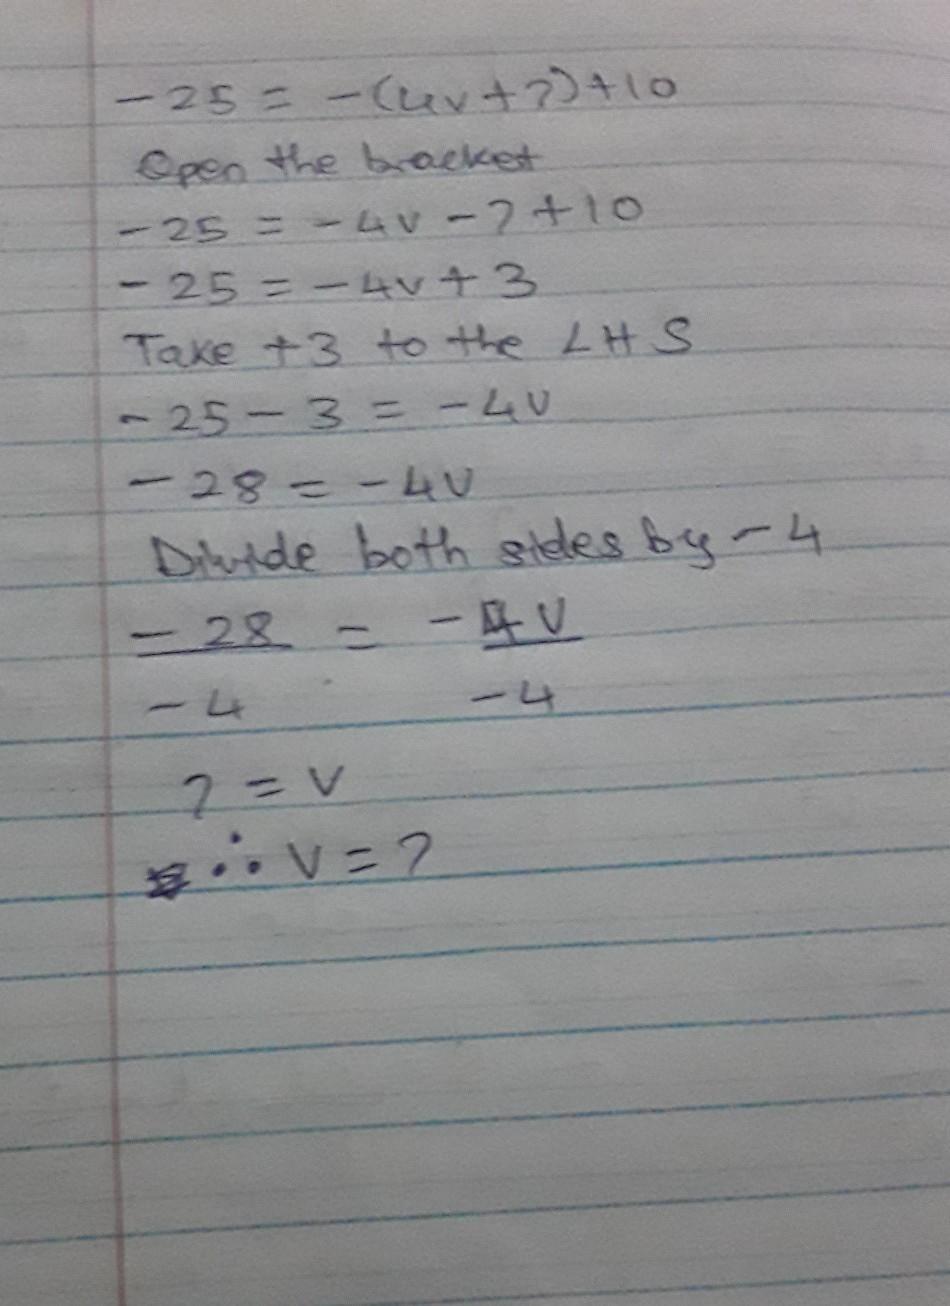 -25 = -(4v+7)+10
Open the bracket
-25 = -4v-7+10
-25 = -4v+3
Take +3 to the LHS
-25-3 = -4v
-28 = -4v
Divide both sides by -4
-28 = -4v
-4 -4
7 = v
∴ v = 7